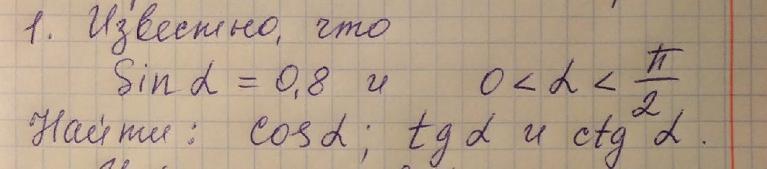 1. Известно, что
Sin α = 0,8 и 0 < α < π/2
Найти: cos α; tg α и ctg α.